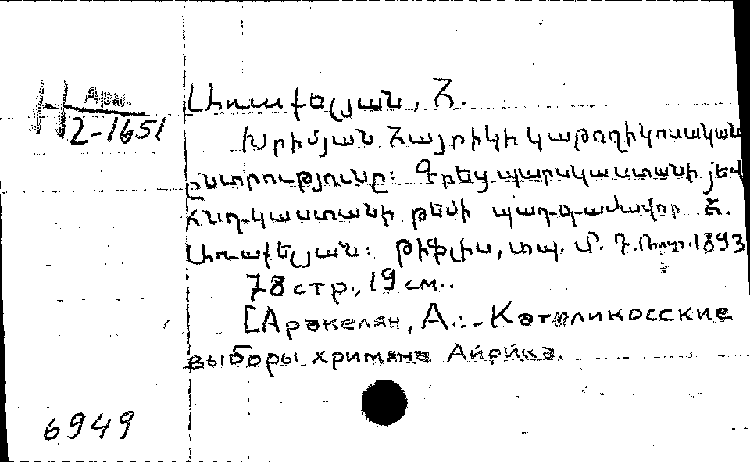 Арм.
2-1651
Առաքելյան, Հ.
Խրիմյան Հայրիկի կաթողիկոսական
ընտրությունը: Գրեց պարսկաստանի յեվ
Հնդկաստանի թեմի պատգամավոր Հ.
Առաքելյան: Թիֆլիս, տպ. Մ. 1893
78 стр., 19 см.
[Аракелян, А. Католикосские
выборы хримяна Айрика.
6949